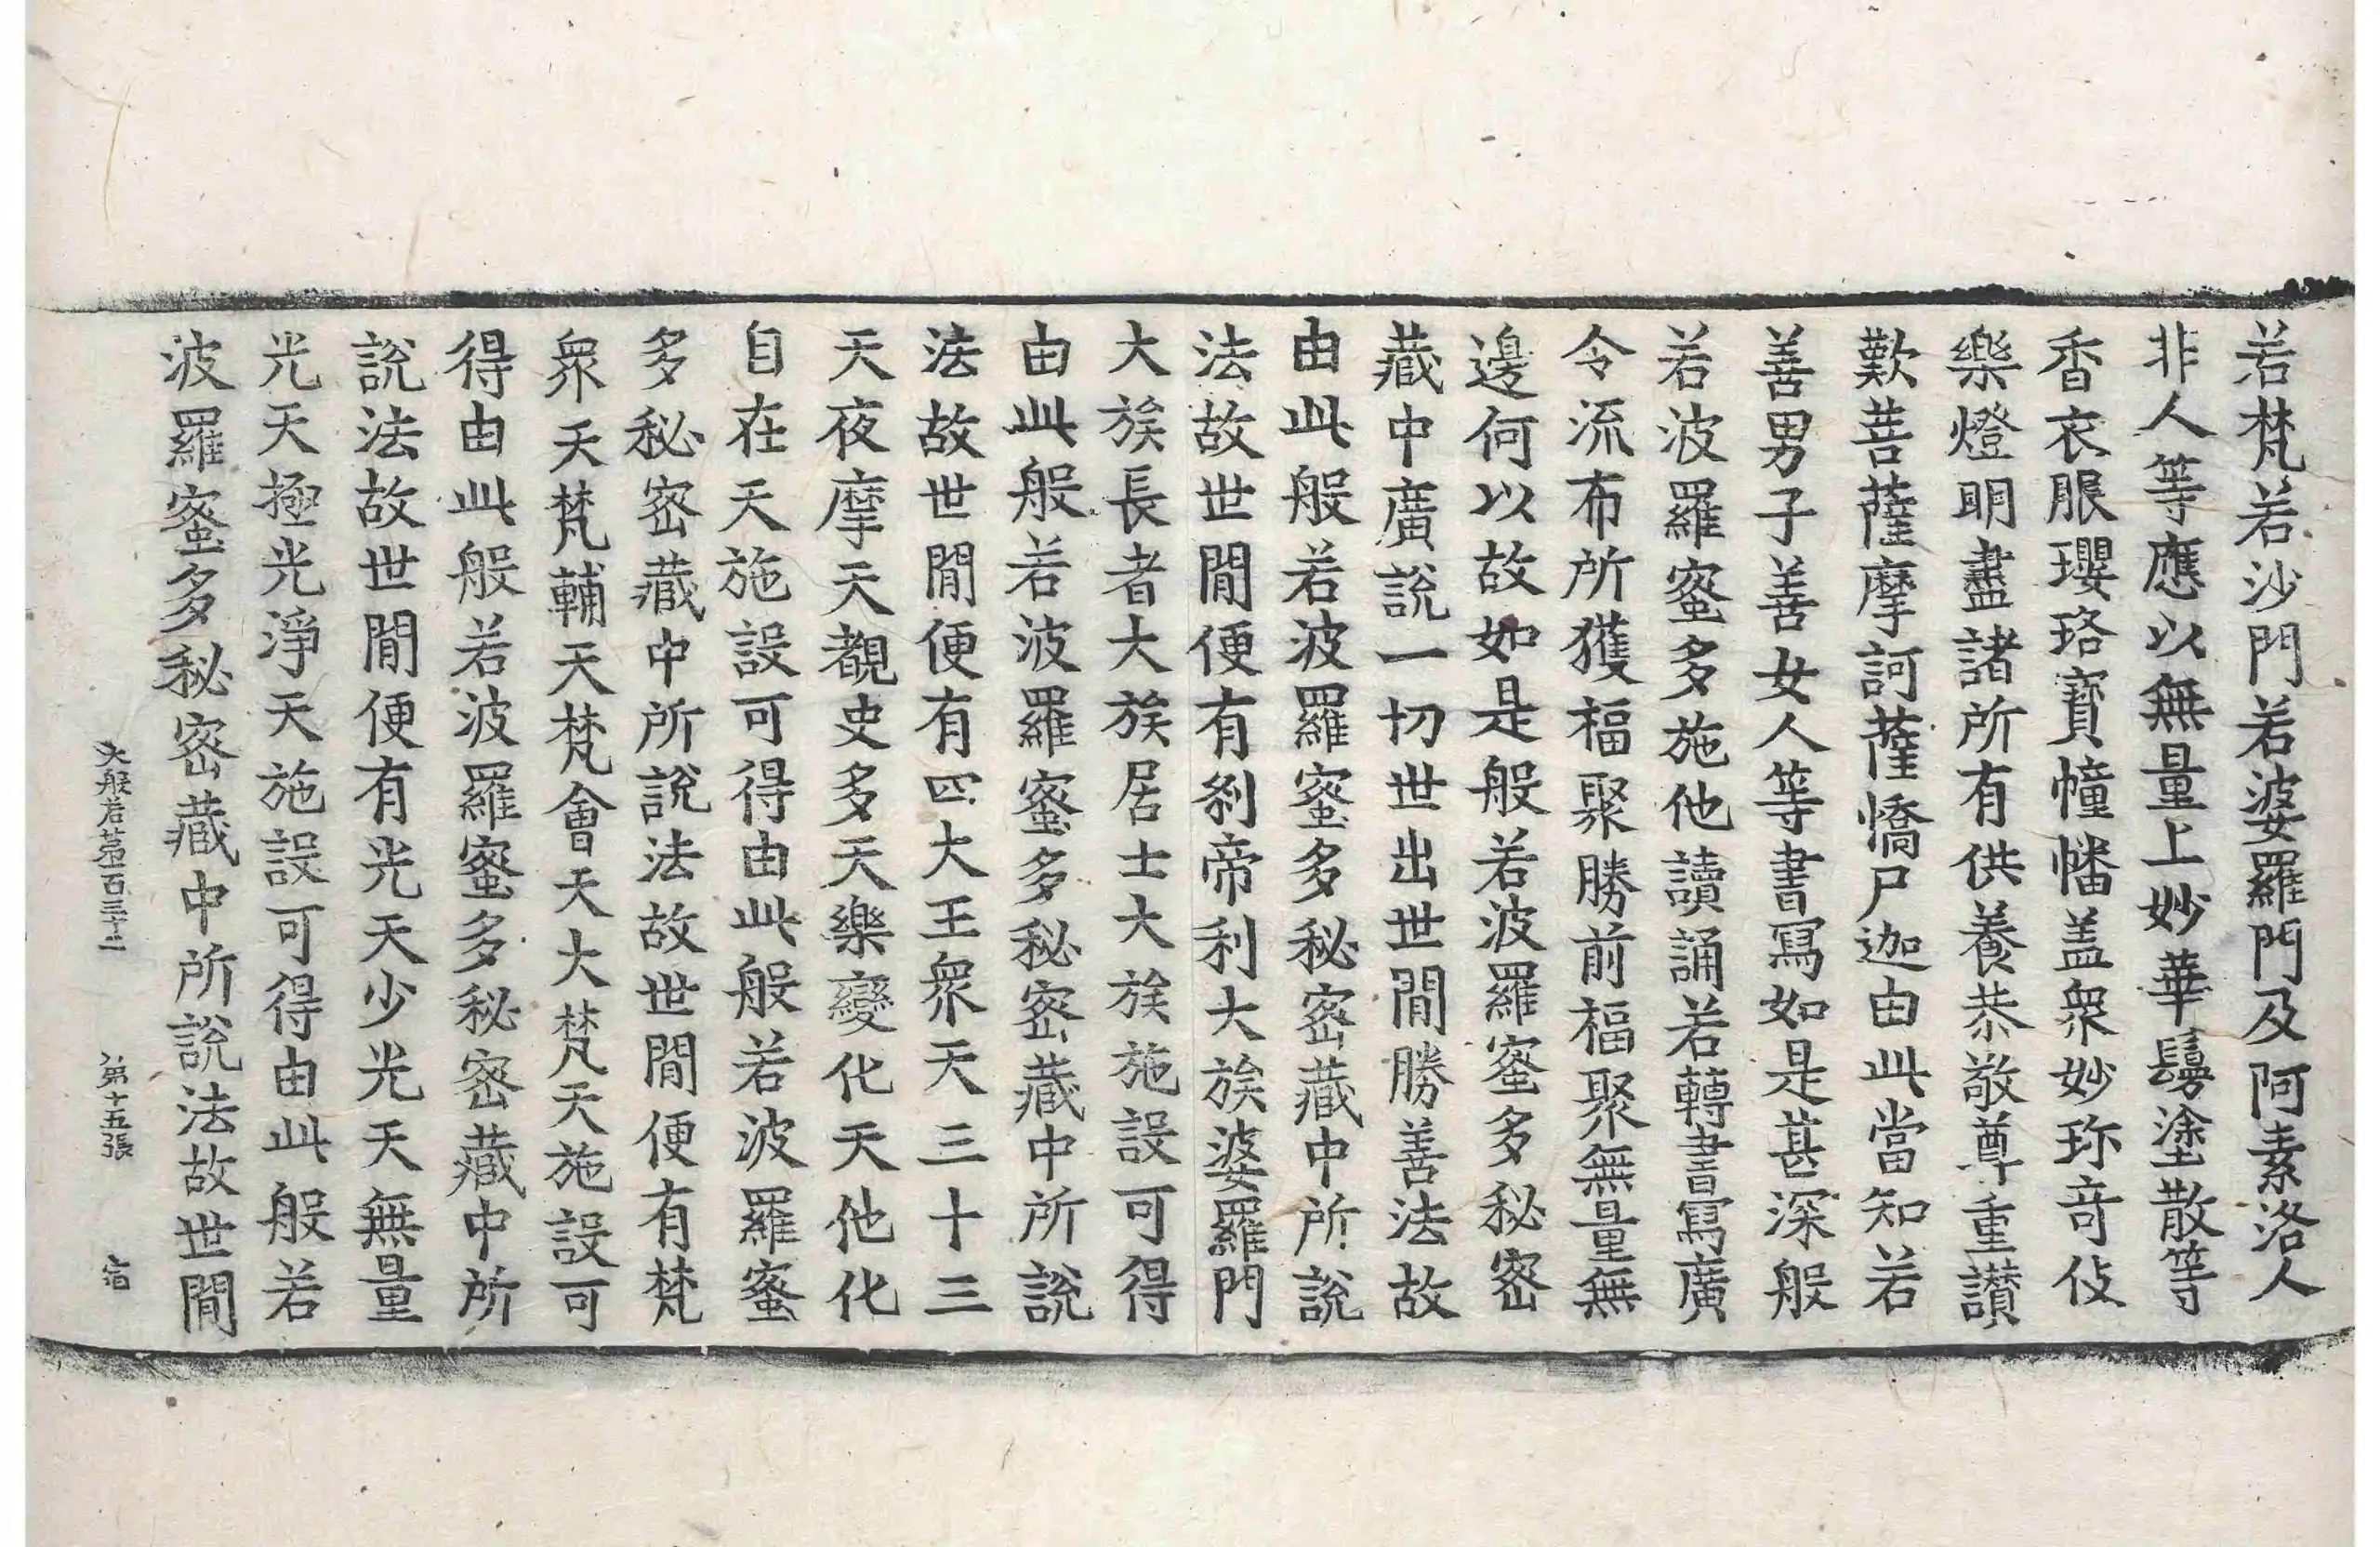 若梵若沙門若婆羅門及阿素洛人
非人等應以無量上妙華鬘塗散等
香衣服瓔珞寶幢幡盖衆妙珎竒伎
樂燈明盡諸所有供養恭敬尊重讃
歎菩薩摩訶薩憍尸迦由此當知若
善男子善女人等書寫如是甚深般
若波羅蜜多施他讀誦若轉書寫廣
令流布所獲福聚勝前福聚無量無
邊何以故如是般若波羅蜜多秘密
藏中廣說一切世出世閒勝善法故
由此般若波羅蜜多秘密藏中所說
法故世閒便有刹帝利大族婆羅門
大族長者大族居士大族施設可得
由此般若波羅蜜多秘密藏中所說
法故世閒便有四大王衆天三十三
天夜摩天覩史多天樂變化天他化
自在天施設可得由此般若波羅蜜
多秘密藏中所說法故世閒便有梵
衆天梵輔天梵會天大梵天施設可
得由此般若波羅蜜多秘密藏中所
說法故世閒便有光天少光天無量
光天極光淨天施設可得由此般若
波羅蜜多秘密藏中所說法故世閒
大般若第一百三十二 第十五張 宿